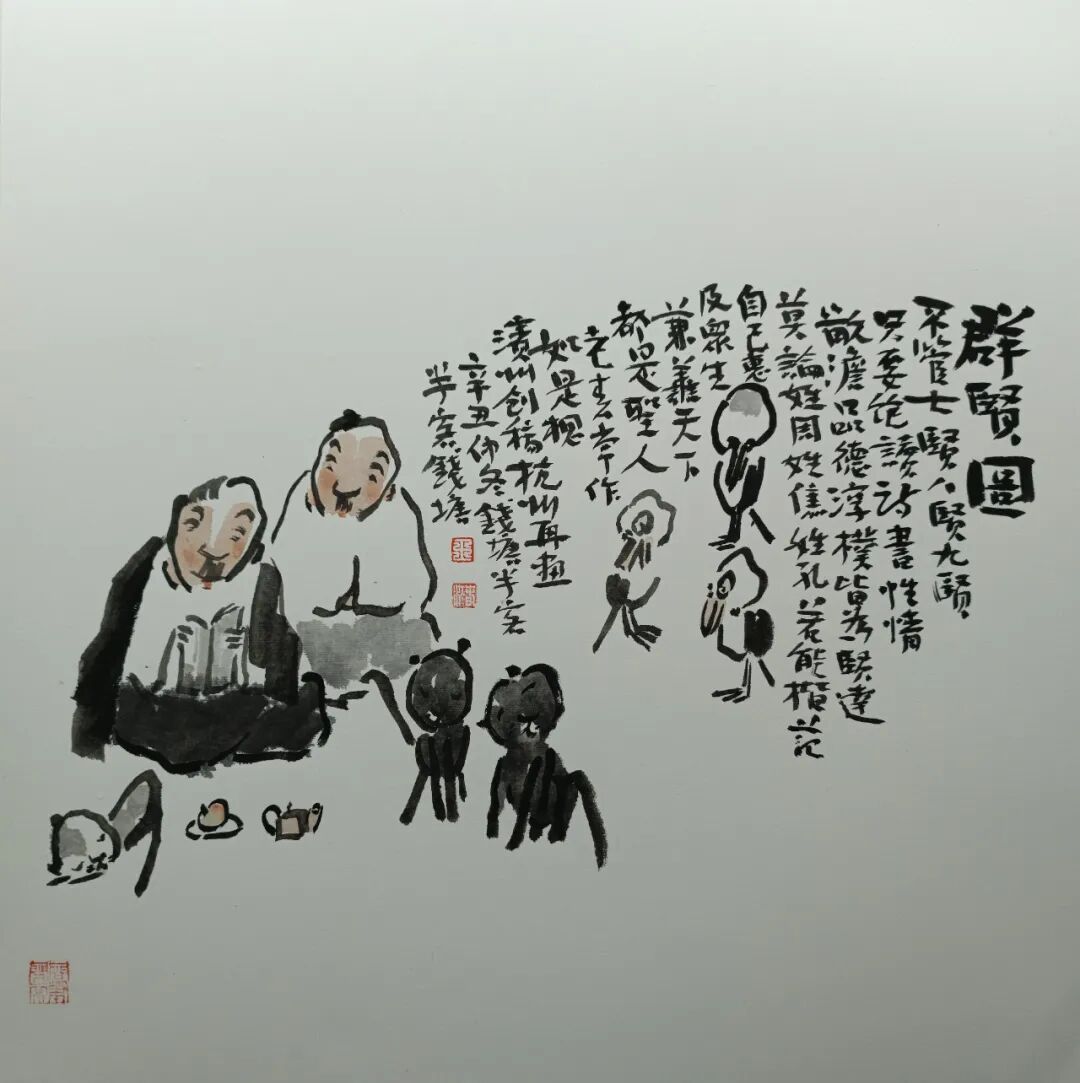 群賢圖
不管七賢八賢九賢
只要能讀詩書性情
散澹品德淳樸皆為賢達
莫論姓周姓焦姓孔若能範
自己惠
及眾生
兼善天下
都是聖人
老去常作
如是想
濱州創稿杭州再畫
辛丑仲冬錢塘半客
半客錢塘
張